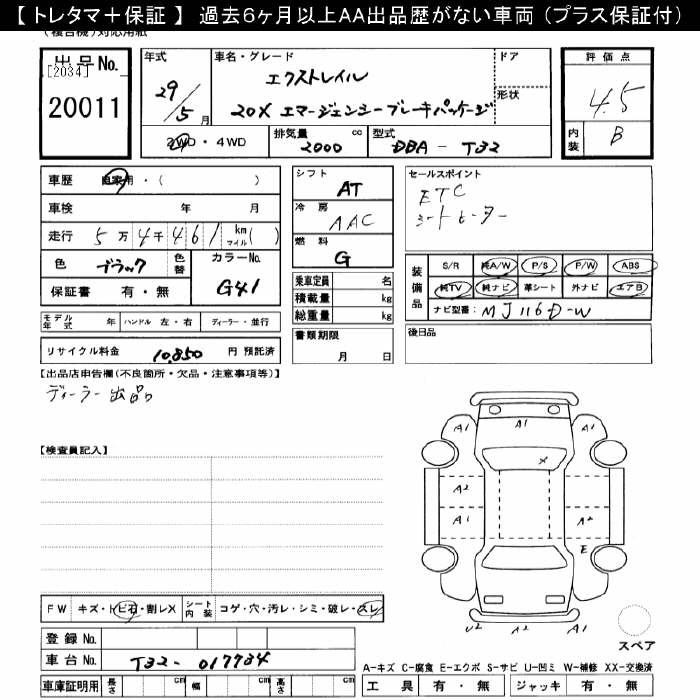 【 トレタマ＋保証 】 過去6ヶ月以上AA出品歴がない車両（プラス保証付）
（複合機）対応用紙
出品No.
[2034]
20011
年式
29/5月
車名・グレード
エクストレイル
20X エマージェンシーブレーキパッケージ
ドア
形状
評価点
4.5
内装
B
2WD・4WD
排気量
2000 cc
型式
DBA - T32
車歴 自家用・（ ）
車検 年 月
走行 5万4千461 km マイル（ ）
色 ブラック 色替
カラーNo. G41
保証書 有・無
シフト
AT
冷房
AAC
燃料
G
乗車定員 名
積載量 kg
総重量 kg
書類期限
月 日
セールスポイント
ETC
シートヒーター
装備品
S/R 純A/W P/S P/W ABS
純TV 純ナビ 革シート 外ナビ エアB
ナビ型番: MJ116D-W
後日品
モデル年式 年 ハンドル 左・右 ディーラー・並行
リサイクル料金 10,850 円 預託済
【出品店申告欄(不良箇所・欠品・注意事項等)】
ディーラー出品
【検査員記入】
A1 A1 A1
X
A2
A1 A2
E
U2 A2 A1
スペア
FW キズ・トビ石・割レX シート内装 コゲ・穴・汚レ・シミ・破レ・スレ
登録No.
車台No. T32-017734
車庫証明用 長さ cm 幅 cm 高さ cm
A-キズ C-腐食 E-エクボ S-サビ U-凹ミ W-補修 XX-交換済
工具 有・無 ジャッキ 有・無